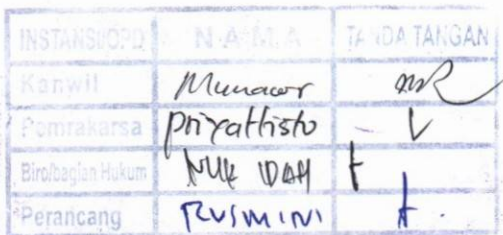 INSTANSI/OPD NAMA TANDA TANGAN
Kanwil Munawar
Pemrakarsa Priyattisto
Biro/bagian Hukum NUR IDAH
Perancang RUSMINI